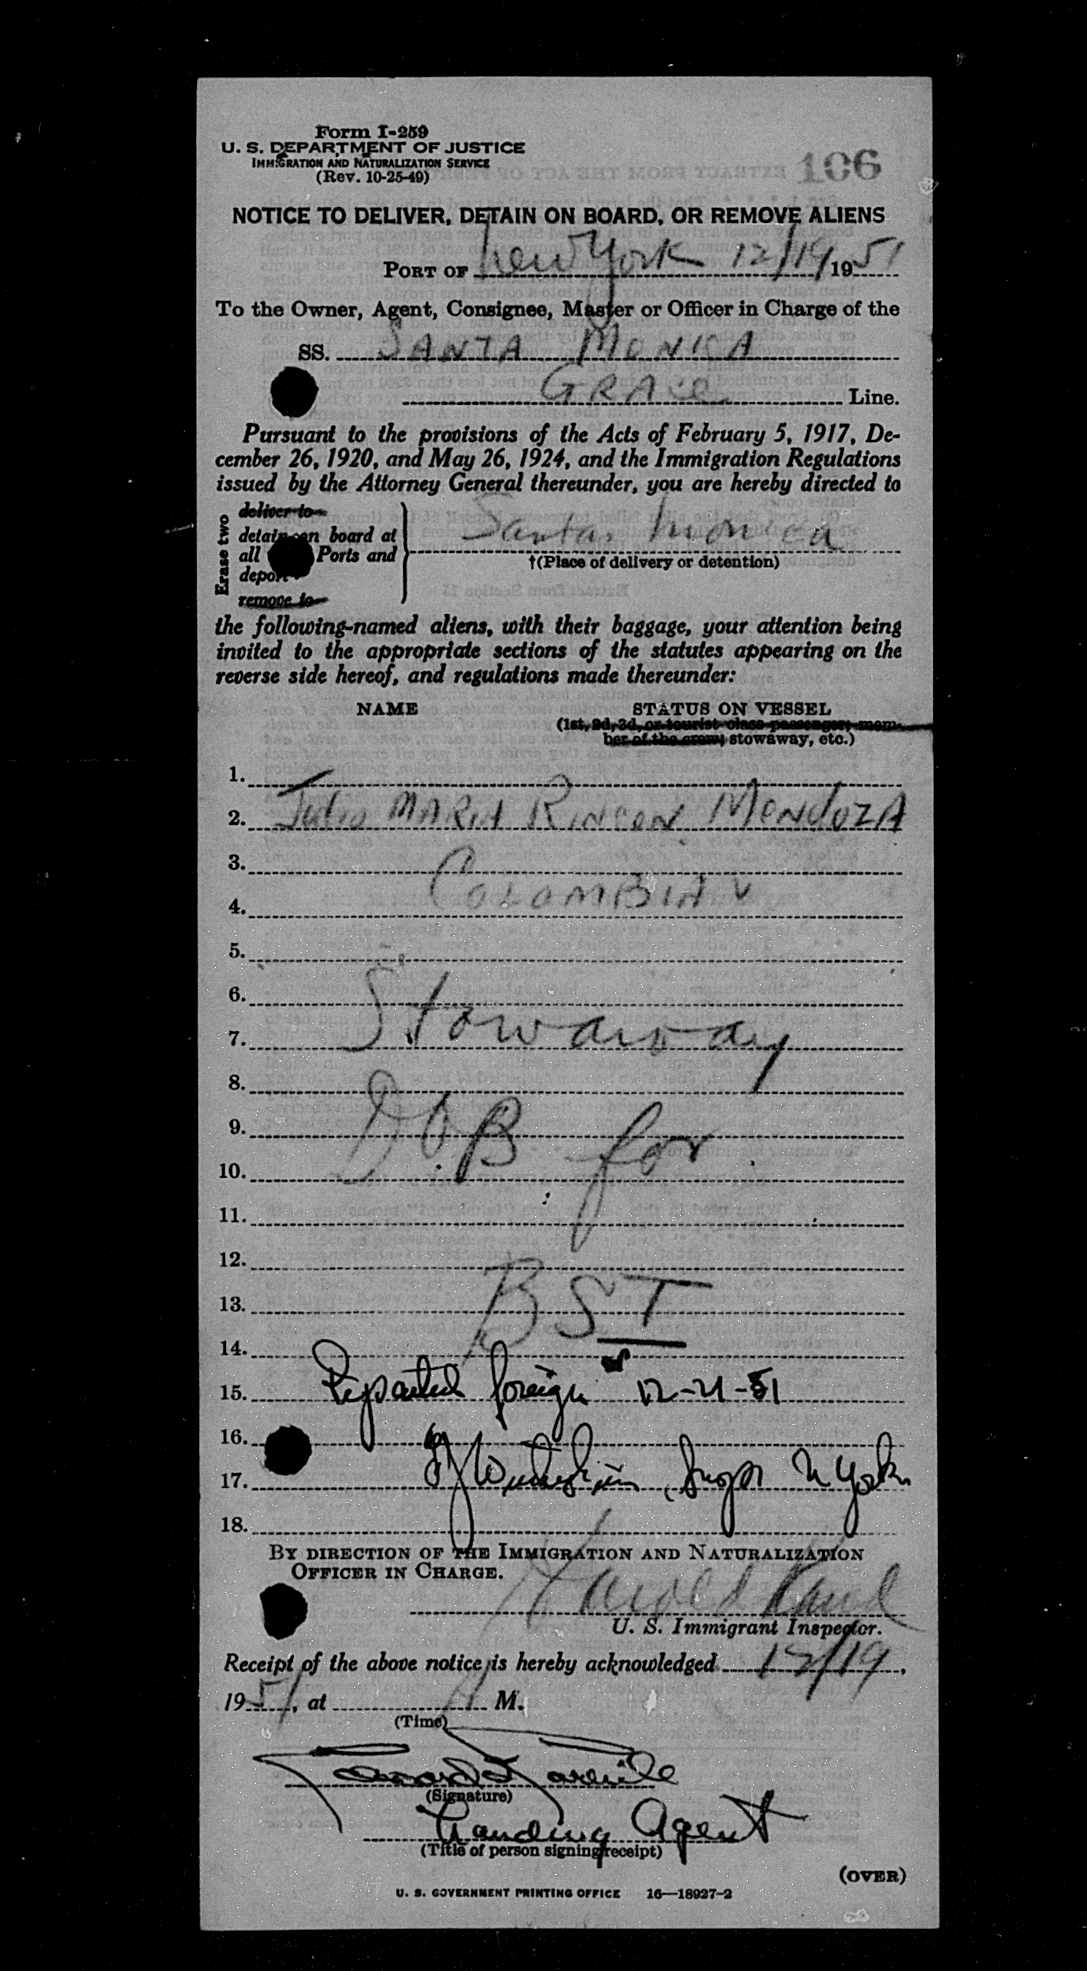 Form I-259
U. S. DEPARTMENT OF JUSTICE
IMMIGRATION AND NATURALIZATION SERVICE
(Rev. 10-25-49)
106
NOTICE TO DELIVER, DETAIN ON BOARD, OR REMOVE ALIENS
PORT OF New York 12/19 1951
To the Owner, Agent, Consignee, Master or Officer in Charge of the
SS. SANTA MONICA
GRACE Line.
Pursuant to the provisions of the Acts of February 5, 1917, De-
cember 26, 1920, and May 26, 1924, and the Immigration Regulations
issued by the Attorney General thereunder, you are hereby directed to
Erase two
deliver to
detain on board at
all Ports and
deport
remove to
Santa Monica
†(Place of delivery or detention)
the following-named aliens, with their baggage, your attention being
invited to the appropriate sections of the statutes appearing on the
reverse side hereof, and regulations made thereunder:
NAME STATUS ON VESSEL
(1st, 2d, 3d, or tourist class passenger, mem-
ber of the crew, stowaway, etc.)
1.
2. Julio MARIA RINCON MENDOZA
3.
4. COLOMBIAN
5.
6.
7. Stowaway
8.
9.
10. DOB for
11.
12.
13. BST
14.
15. foreign 12-21-51
16.
17. Inspr N York
18.
BY DIRECTION OF THE IMMIGRATION AND NATURALIZATION
OFFICER IN CHARGE.
Harold
U. S. Immigrant Inspector.
Receipt of the above notice is hereby acknowledged 12/19,
1951, at A M.
(Time)
(Signature)
Landing Agent
(Title of person signing receipt)
(OVER)
U. S. GOVERNMENT PRINTING OFFICE 16—18927-2